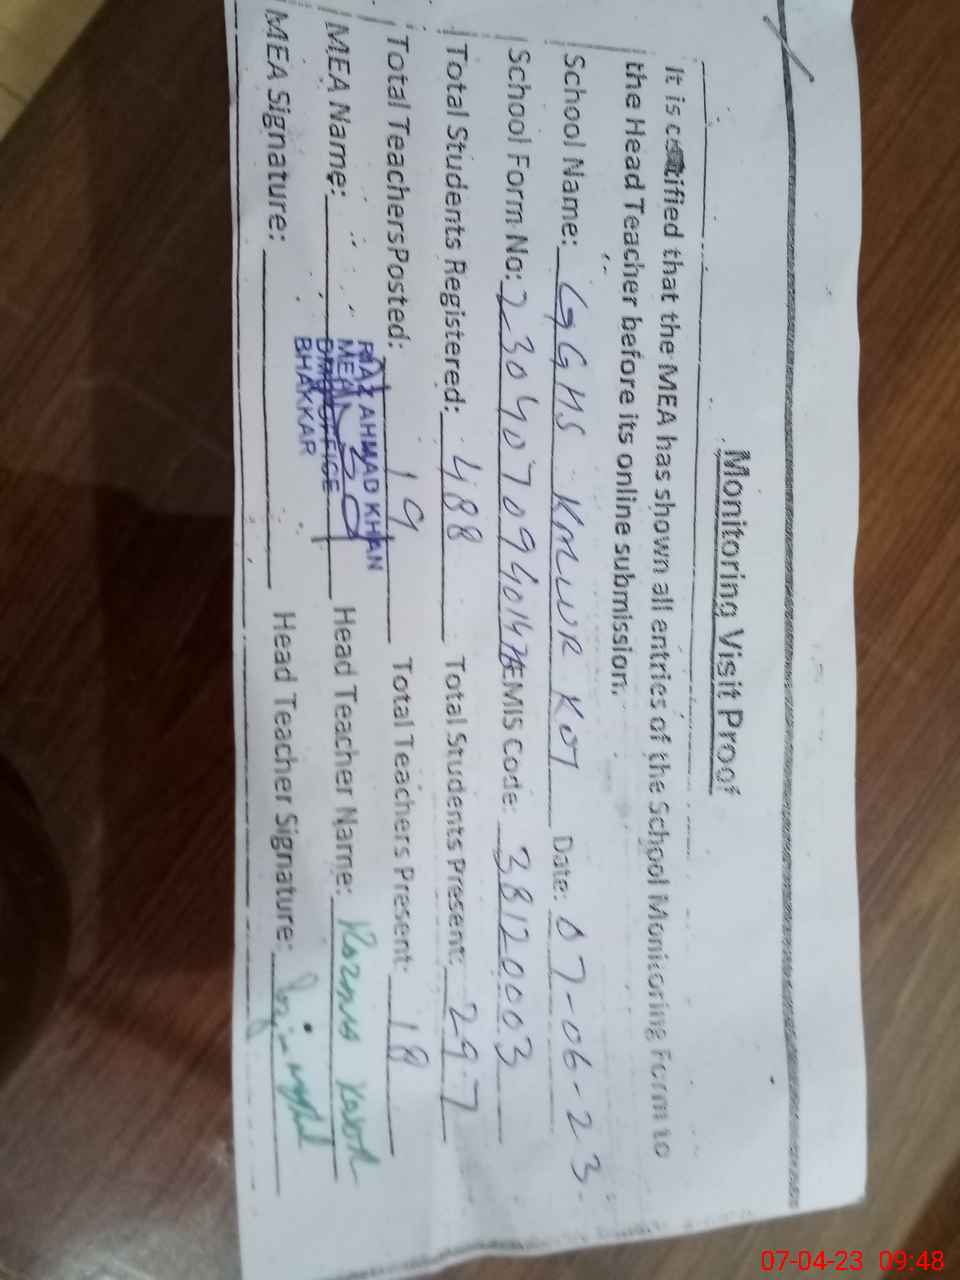 Monitoring Visit Proof
It is certified that the MEA has shown all entries of the School Monitoring Form to
the Head Teacher before its online submission.
School Name: GGHS KALUR KOT Date: 07-06-23
School Form No: EMIS Code: 38120003
Total Students Registered: 488 Total Students Present: 297
Total TeachersPosted: 19 Total Teachers Present: 18
MEA Name: Head Teacher Name:
RIAZ AHMAD KHAN
MEA
OFFICE
BHAKKAR
MEA Signature: Head Teacher Signature:
07-04-23 09:48